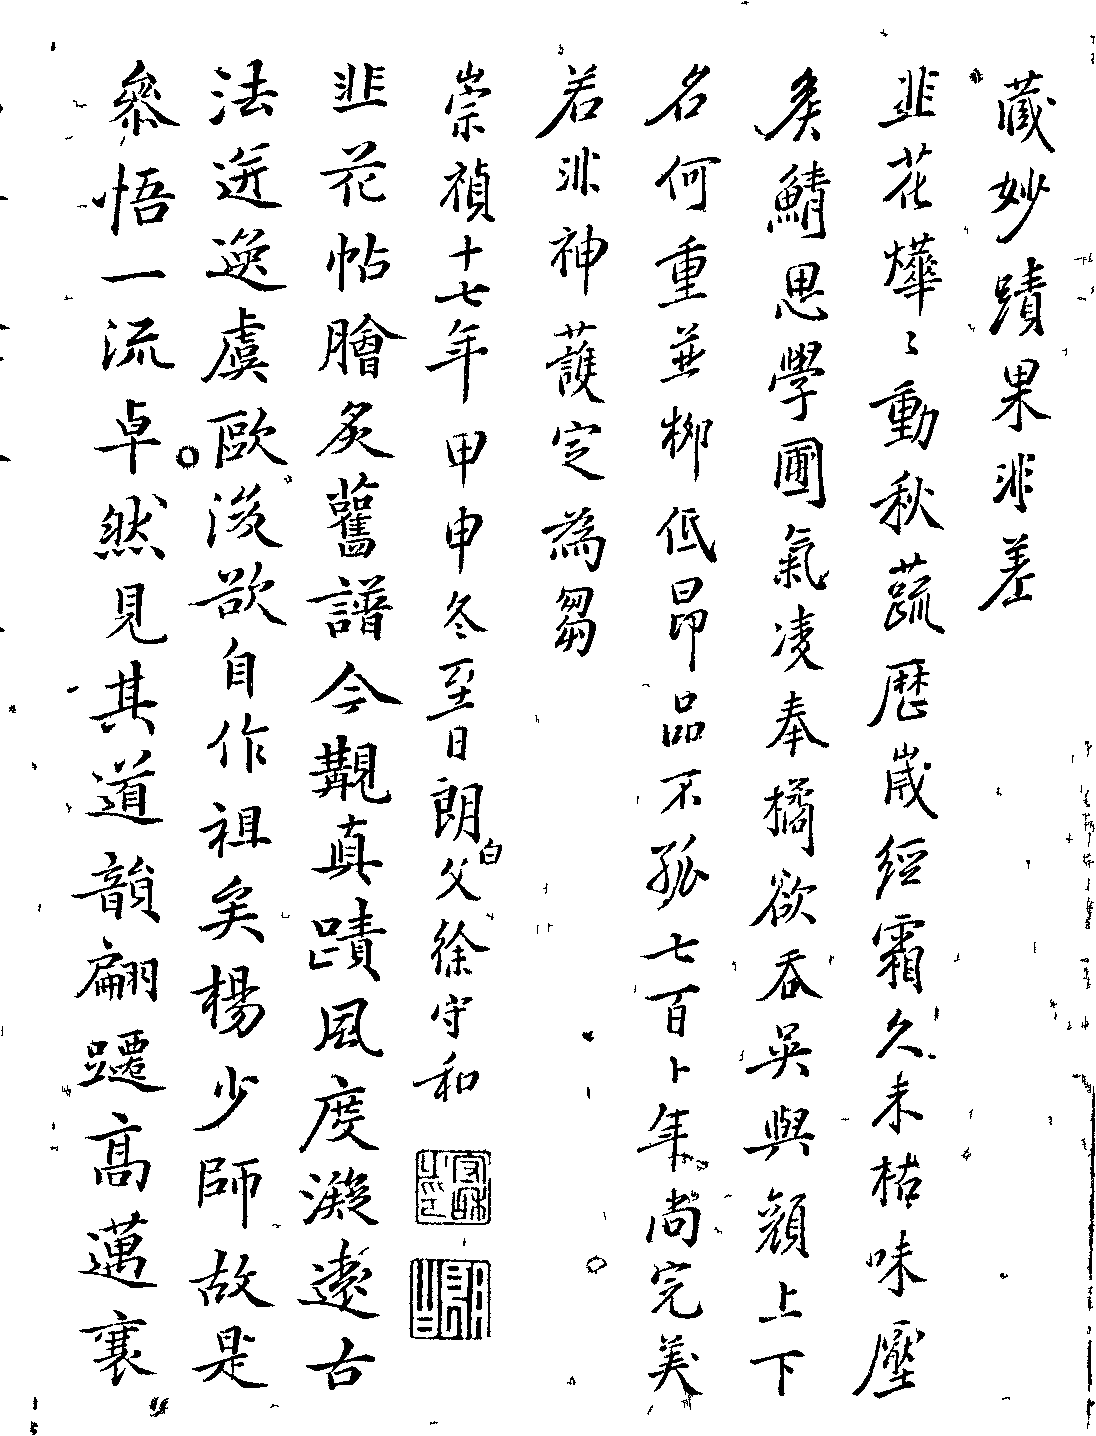 藏妙蹟果非差
韭花燁〻動秋蔬歷歲經霜久未枯味壓
矦鯖思學圃氣凌奉橘欲吞吳與顏上下
名何重並柳低昂品不孤七百卜年尚完美
若非神護定為芻
崇禎十七年甲申冬至日朗白父徐守和
韭花帖膾炙舊譜今覩真蹟風度凝遠古
法遒逸虞歐後欲自作祖矣楊少師故是
參悟一流卓然見其道韻翩躚高邁襄
守和